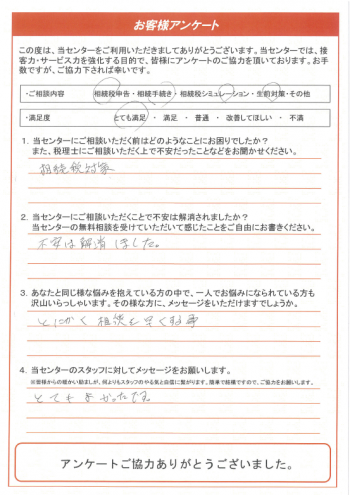 お客様アンケート
この度は、当センターをご利用いただきましてありがとうございます。当センターでは、接
客力・サービス力を強化する目的で、皆様にアンケートのご協力を頂いております。お手
数ですが、ご協力下されば幸いです。
・ご相談内容 相続税申告・相続手続き・相続税シミュレーション・生前対策・その他
・満足度 とても満足 ・ 満足 ・ 普通 ・ 改善してほしい ・ 不満
1. 当センターにご相談いただく前はどのようなことにお困りでしたか？
また、税理士にご相談いただく上で不安だったことなどをお聞かせください。
相続税対象
2. 当センターにご相談いただくことで不安は解消されましたか？
当センターの無料相談を受けていただいて感じたことをご自由にお書きください。
不安は解消しました。
3. あなたと同じ様な悩みを抱えている方の中で、一人でお悩みになられている方も
沢山いらっしゃいます。その様な方に、メッセージをいただけますでしょうか。
とにかく相談を早くする事
4. 当センターのスタッフに対してメッセージをお願いします。
※皆様からの暖かい励ましが、何よりもスタッフのやる気と自信に繋がります。簡単で結構ですので、ご協力をお願いします。
とてもよかったです
アンケートご協力ありがとうございました。